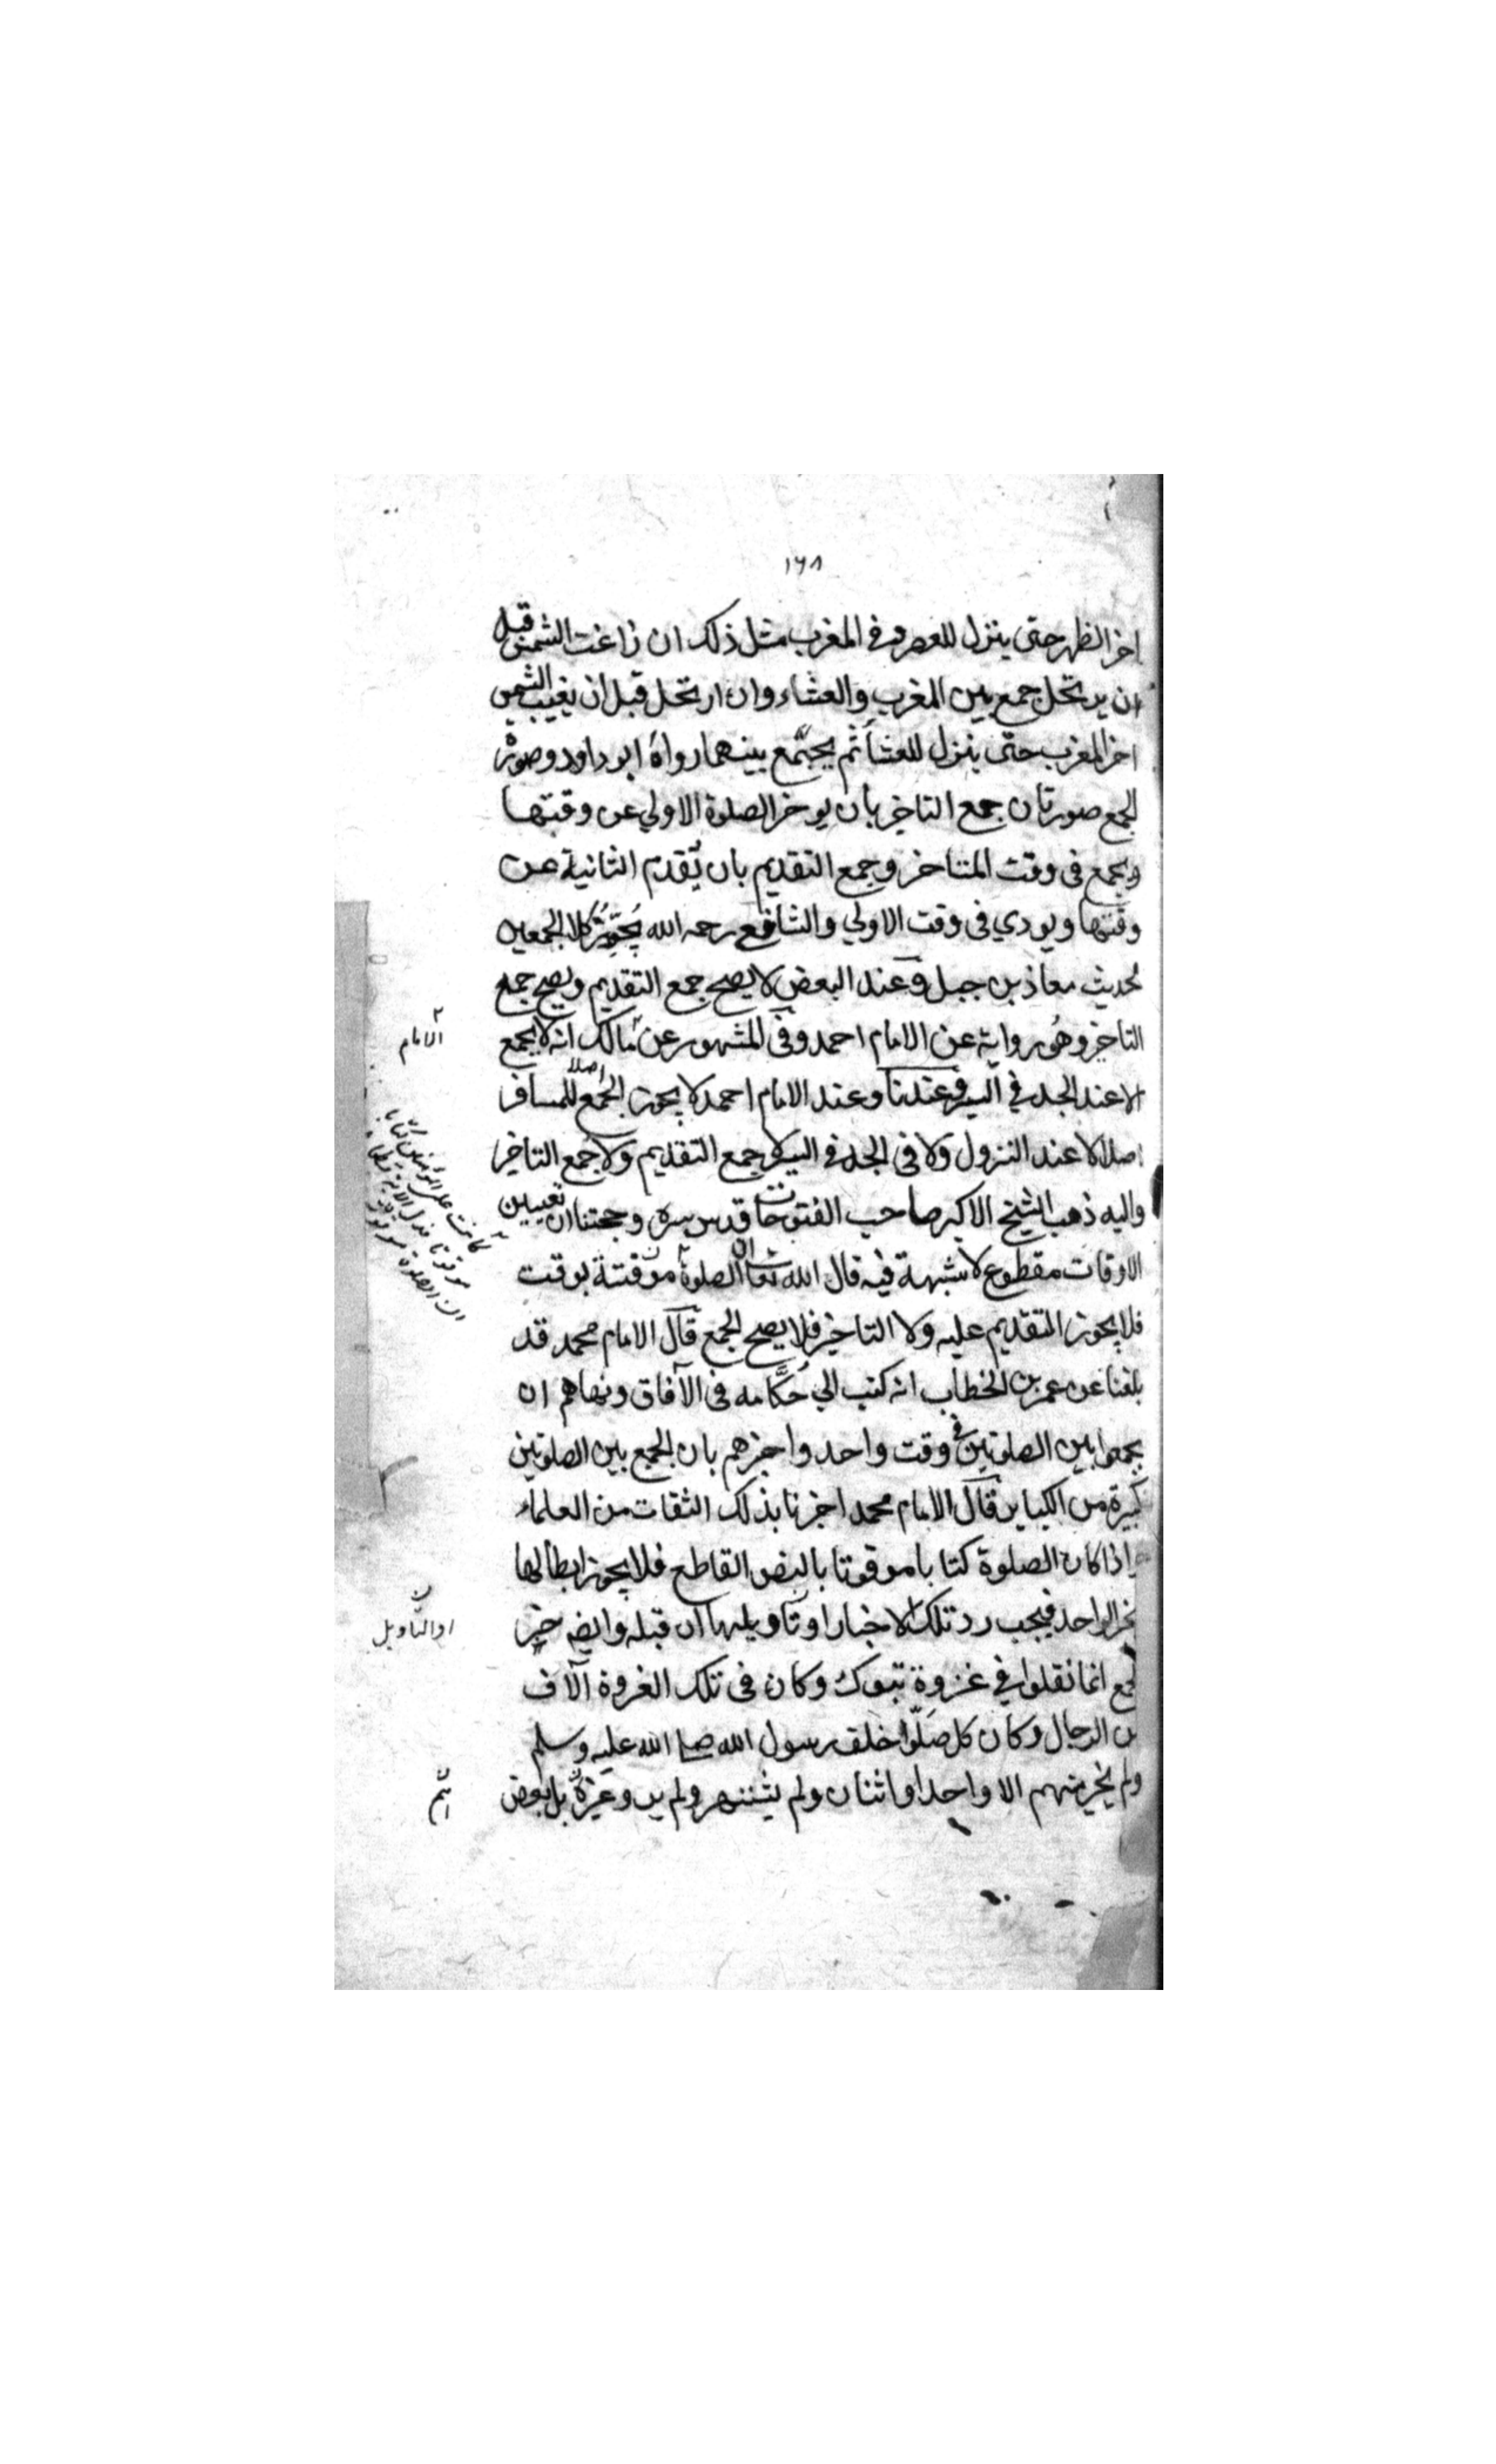 ١٦٨
اخر الظهر حتى ينزل للعصر وفي المغرب مثل ذلك ان زاغت الشمس قبل
ان يرتحل جمع بين المغرب والعشاء وان ارتحل قبل ان يغيب الشمس
اخر المغرب حتى ينزل للعشا ثم يجتمع بينهما رواه ابو داود وصورة
الجمع صورتان جمع التاخير بان يوخر الصلوة الاولي عن وقتها
ويجمع فى وقت المتاخر وجمع التقديم بان يُقدم الثانية عن
وقتها ويودي فى وقت الاولي والشافعي رحمه الله يُجَوِّزُ كلا الجمعين
لحديث معاذ بن جبل وعند البعض لا يصح جمع التقديم ويصح جمع
التاخير وهو رواية عن الامام احمد وفى المشهور عن مالك انه لا يجمع
الامام
الا عند الجد في السير وعندنا وعند الامام احمد لا يجوز الجمع اصلا للمسافر
اصلا لا عند النزول ولا فى الجد فى السير لا جمع التقديم ولا جمع التاخير
واليه ذهب الشيخ الاكبر صاحب الفتوحات قدس سره وحجتنا ان تعيين
الاوقات مقطوع لا شبهة فيه قال الله تعالى ان الصلوة موقتة بوقت
كانت على المؤمنين كتابا
موقوتا فدل الاية
ان الصلوة موقوتة
فلا يجوز التقديم عليه ولا التاخير فلا يصح الجمع قال الامام محمد قد
بلغنا عن عمر بن الخطاب انه كتب الي حُكَّامه فى الآفاق ونهاهم ان
يجمعوا بين الصلوتين في وقت واحد واخبرهم بان الجمع بين الصلوتين
كبيرة من الكباير قال الامام محمد اخبرنا بذلك الثقات من العلماء
واذا كان الصلوة كتابا موقوتا بالنص القاطع فلا يجوز ابطالها
بخبر الواحد فيجب رد تلك الاخبار او تاويلها ان قبله وايضه خبر
او التاويل
الجمع انما نقلوا في غزوة تبوك وكان فى تلك الغزوة آلاف
من الرجال وكان كل صَلّوا خلف رسول الله صلى الله عليه وسلم
ولم يخبر منهم الا واحد او اثنان ولم يشتهر ولم يرو غيره بل بعض